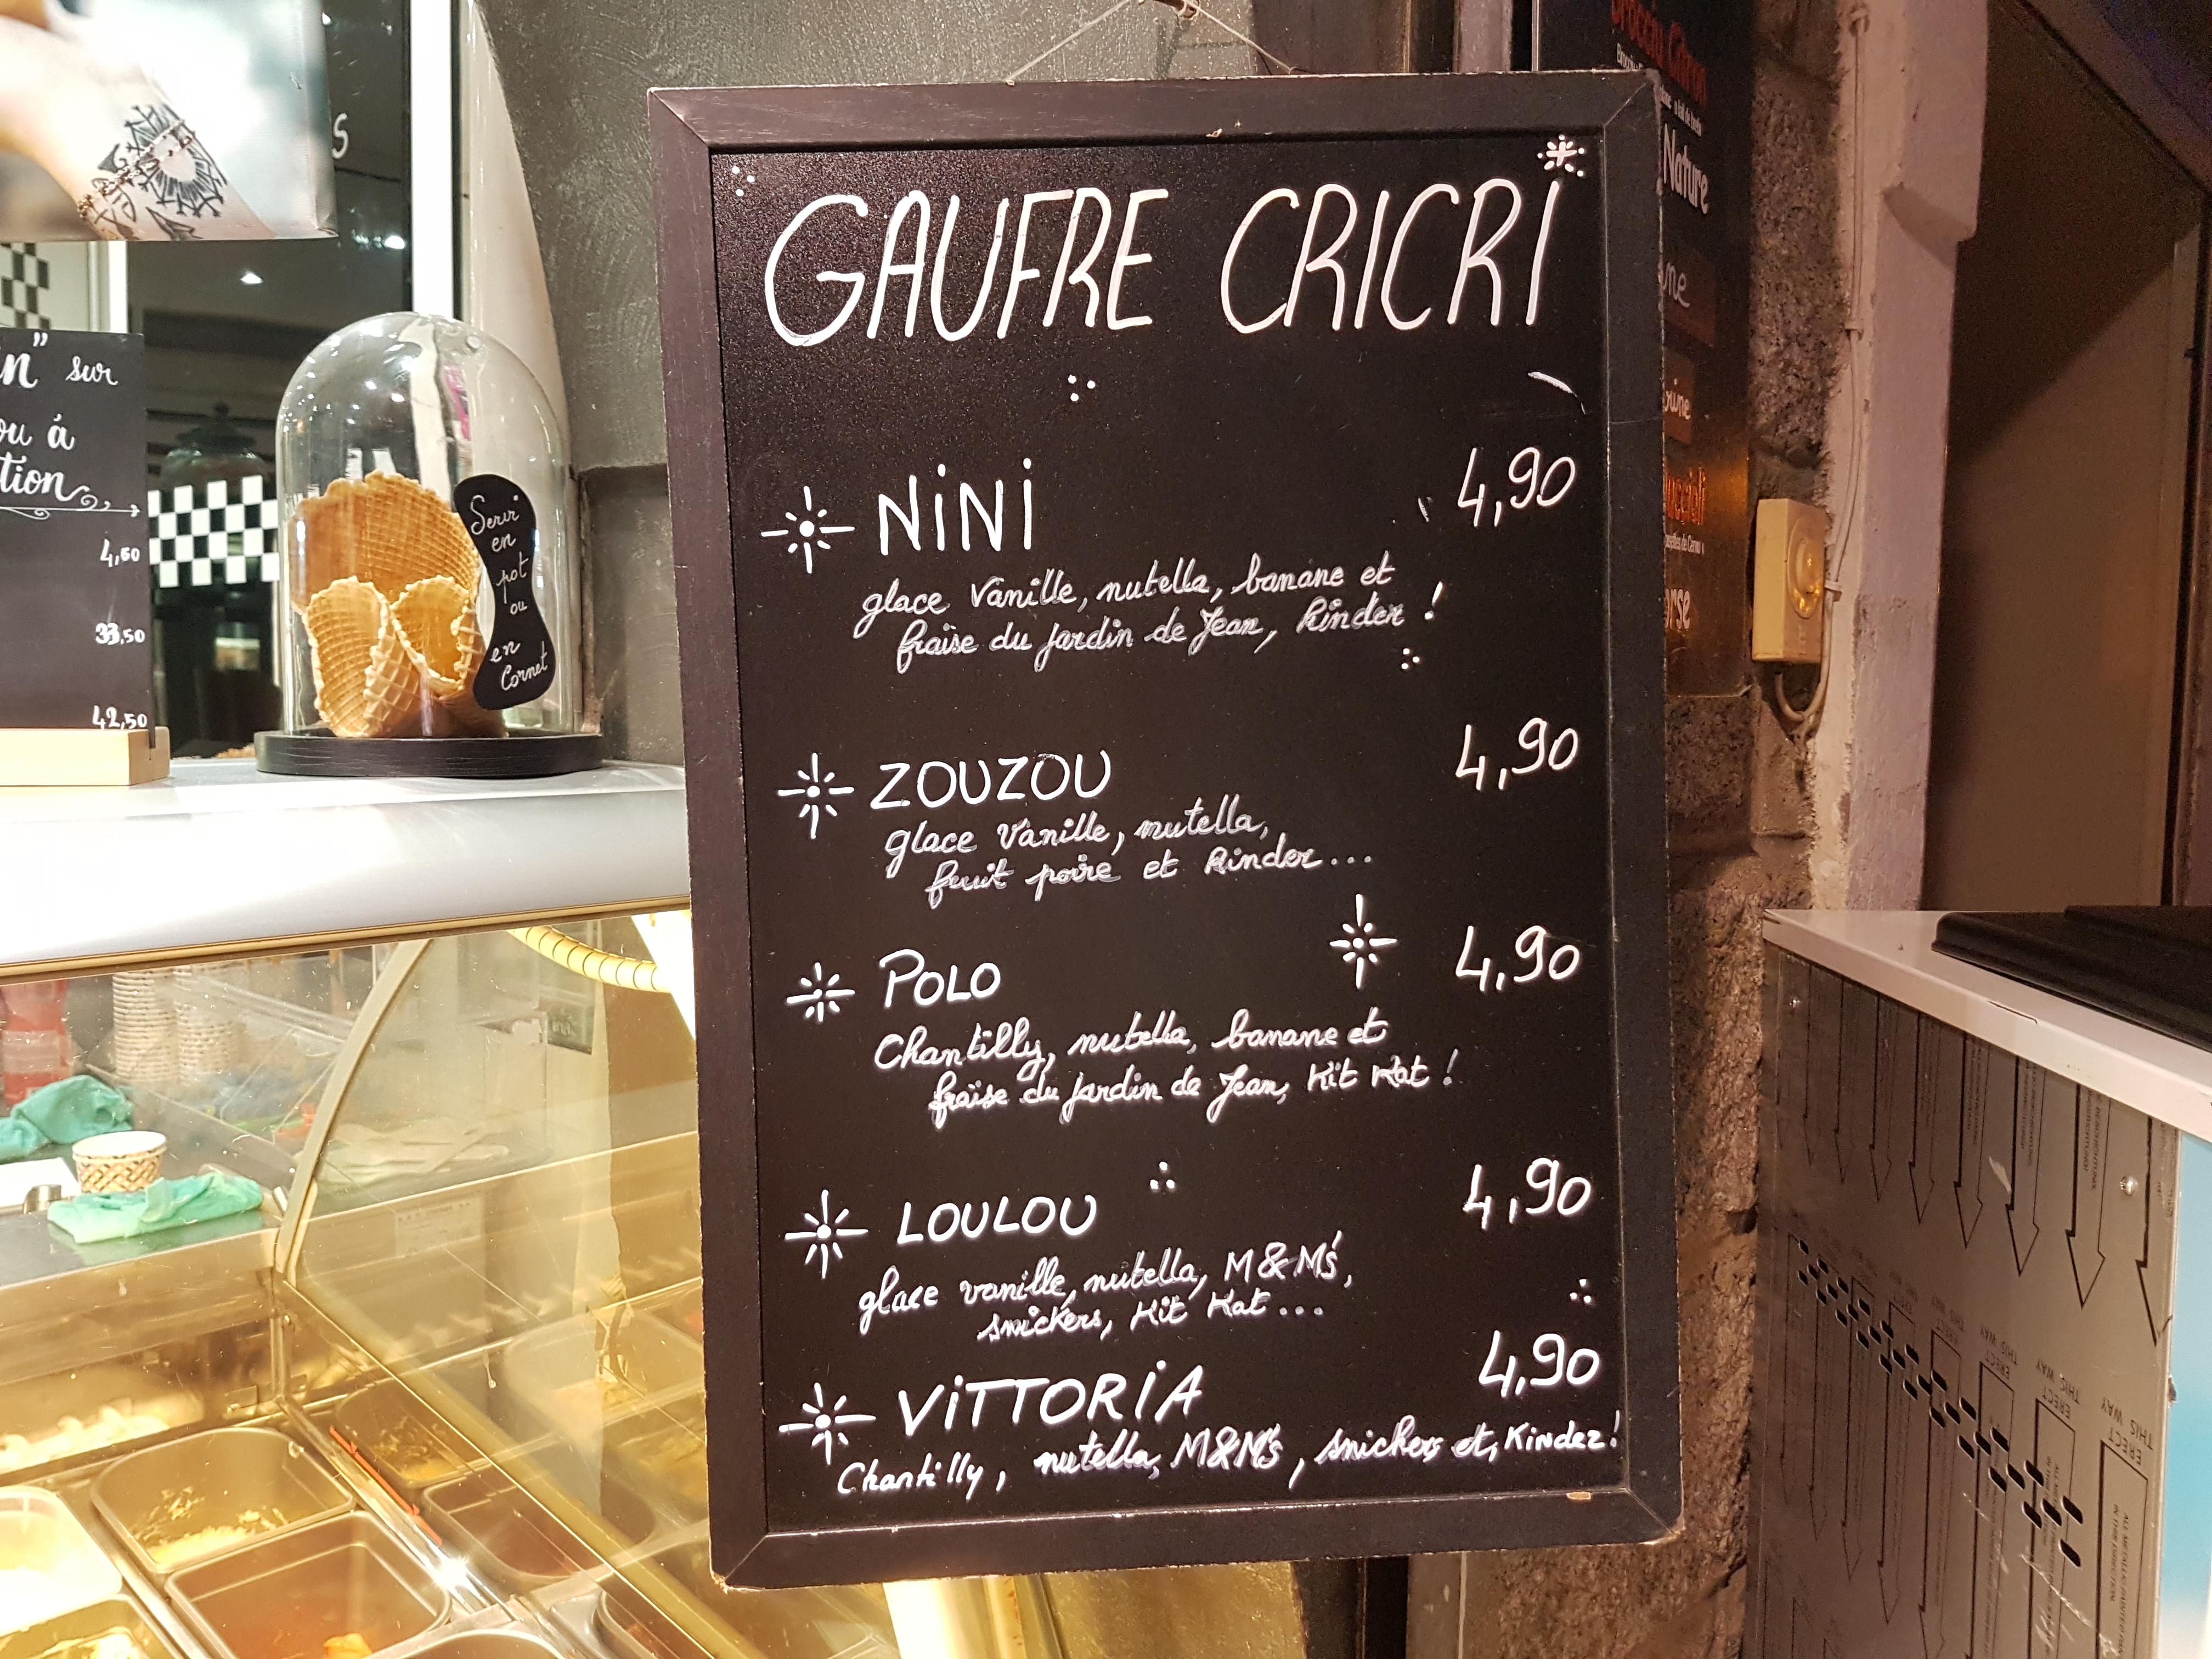 GAUFRE CRICRI
NiNi 4,90
glace Vanille, nutella, banane et
fraise du jardin de Jean, Kinder !
ZOUZOU 4,90
glace Vanille, nutella,
fruit poire et Kinder...
POLO 4,90
Chantilly, nutella, banane et
fraise du jardin de Jean, Kit Kat !
LOULOU 4,90
glace vanille, nutella, M&M's,
snickers, Kit Kat...
ViTTORiA 4,90
Chantilly, nutella, M&M's, snickers et, Kinder!
sur
ou à
4,50
33,50
42,50
Servir
en
pot
ou
en
Cornet
Nature
THIS WAY
ERECT